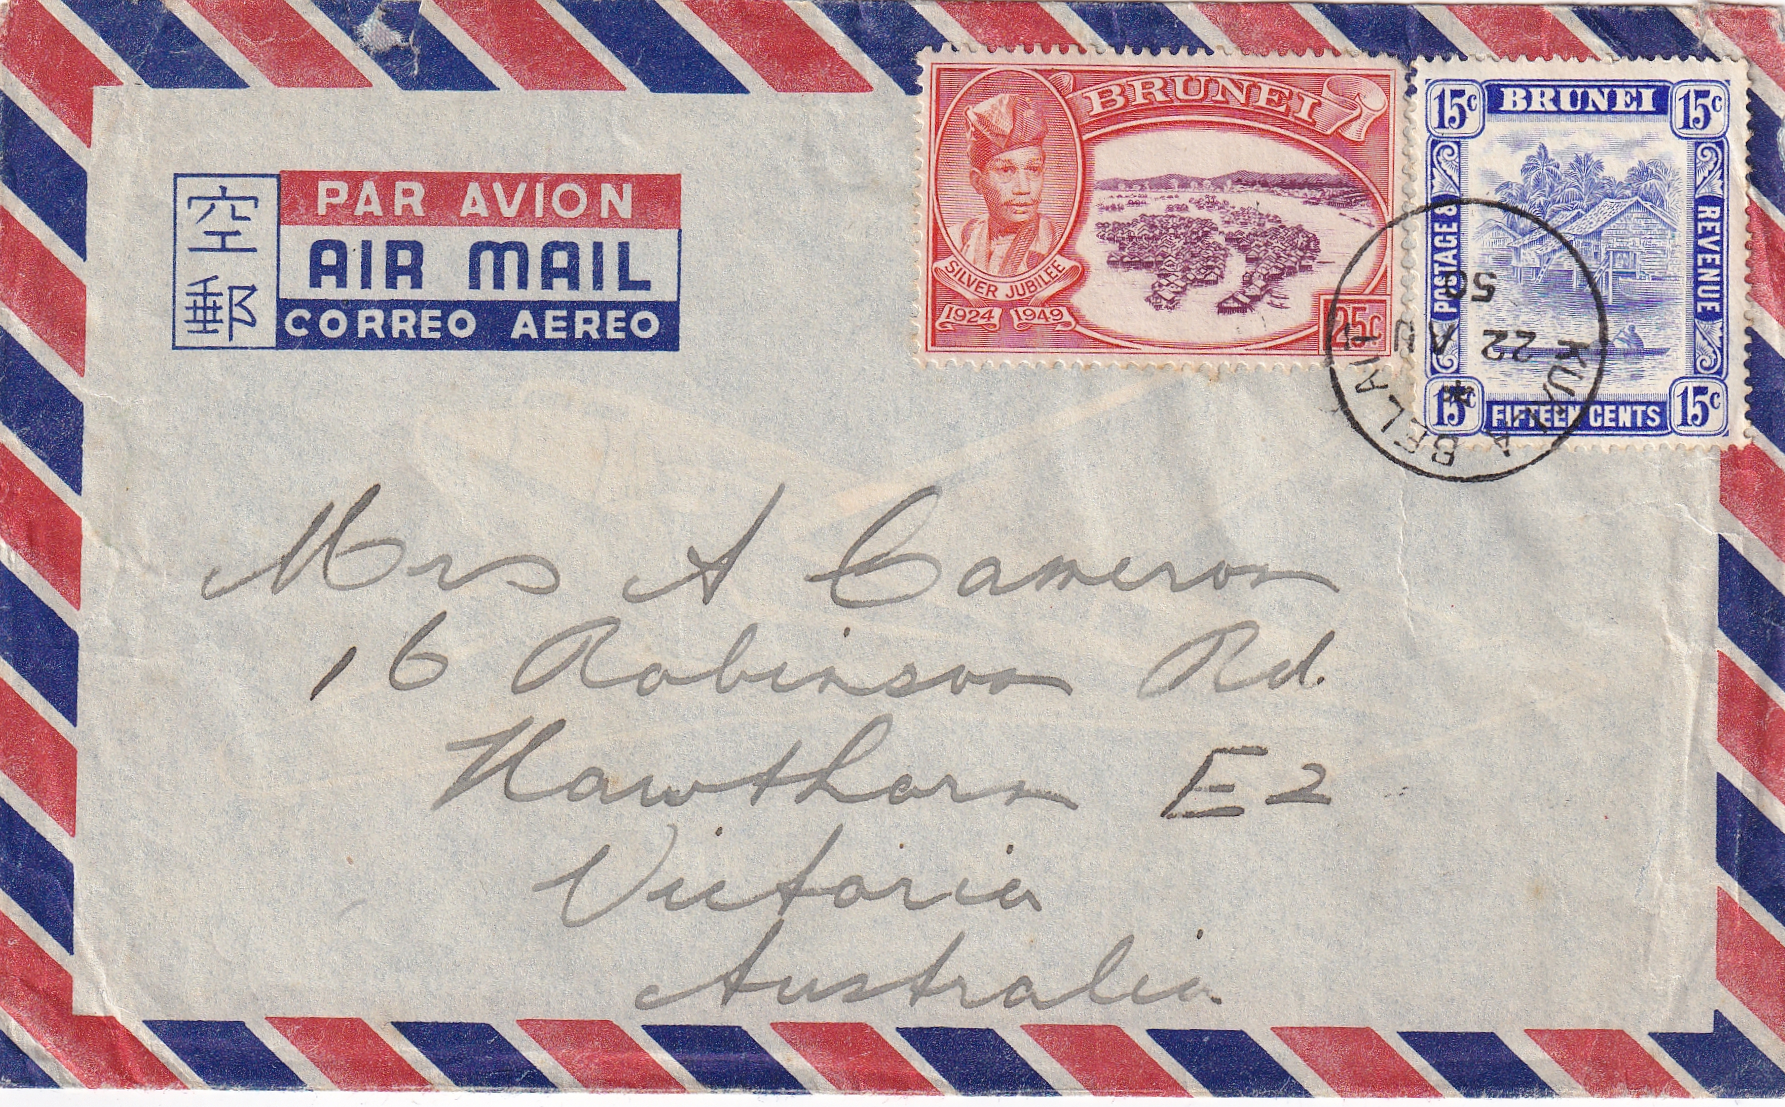 空郵
PAR AVION
AIR MAIL
CORREO AEREO
BRUNEI
SILVER JUBILEE
1924 1949
25c
15c BRUNEI 15c
POSTAGE &
REVENUE
15c FIFTEEN CENTS 15c
KUALA BELAIT
22 AU
50
Mrs A Cameron
16 Robinson Rd.
Hawthorn E2
Victoria
Australia